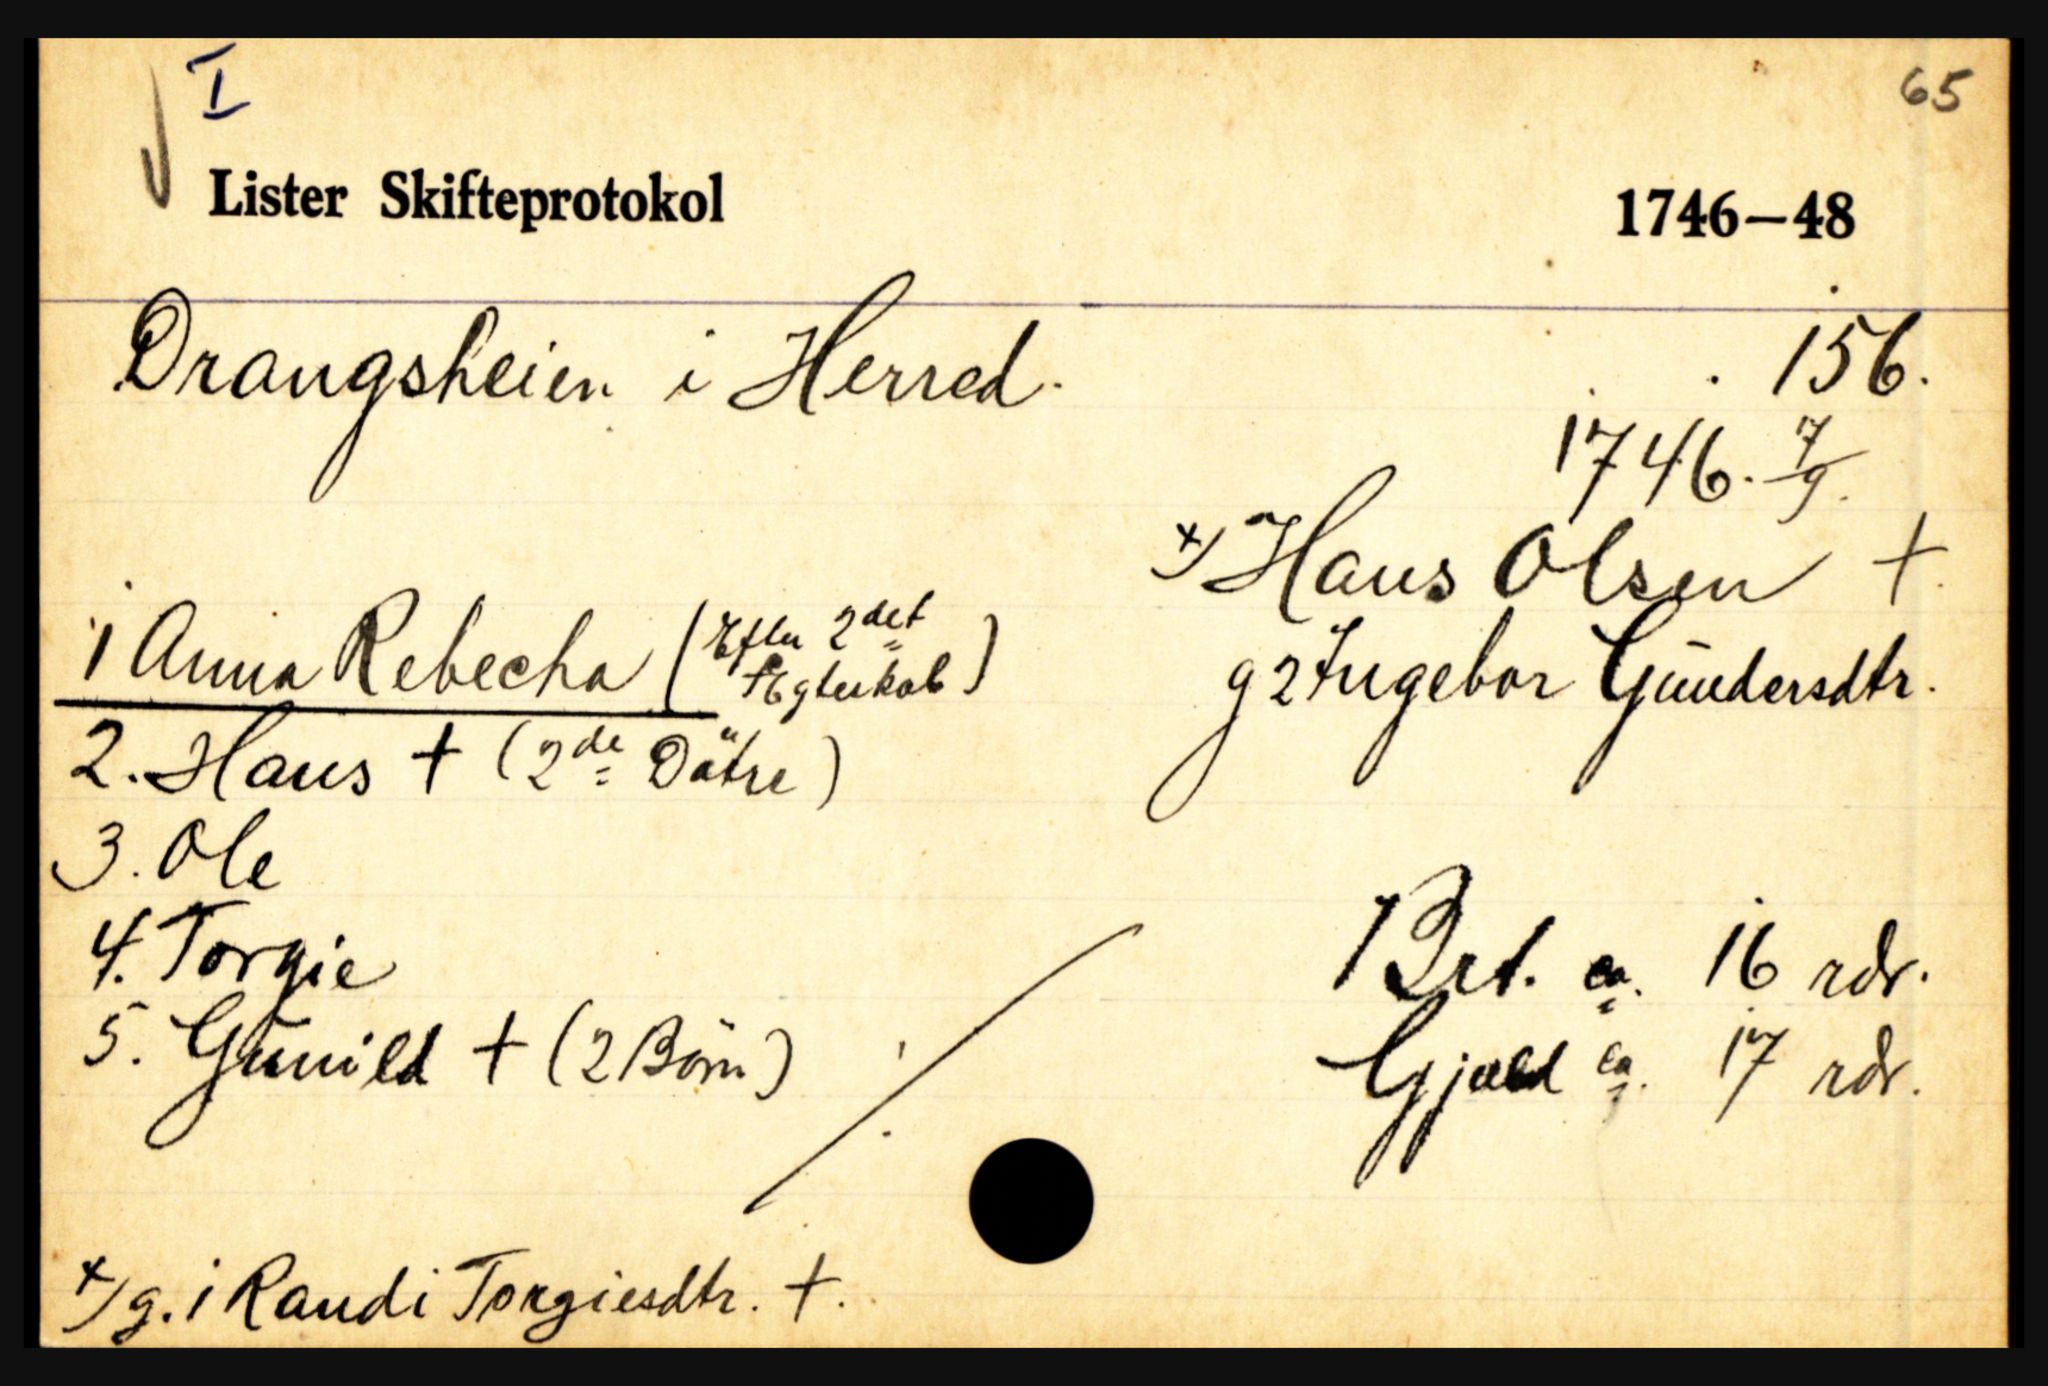 I
65
Lister Skifteprotokol 1746—48
Drangsheien i Herred. 156.
1746. 7/9.
x/ Hans Olsen +.
g 2 Ingebor Gündersdtr.
1 Anna Rebecha (Efter 2det
Ægteskab)
2. Hans + (2de Döttre)
3. Ole
4. Torgie
5. Günild + (2 Börn)
Brt. ca. 16 rdr.
Gjæld ca. 17 rdr.
x/ g. 1 Randi Torgiesdtr. +.